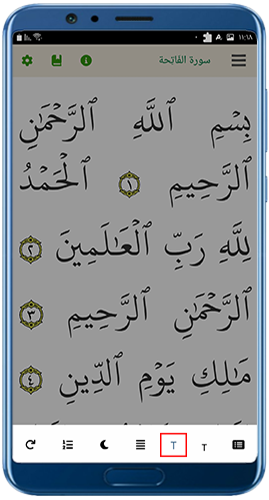 ١١:٦٨
سورة الفاتحة
بِسْمِ ٱللَّهِ ٱلرَّحْمَٰنِ
ٱلرَّحِيمِ ١ ٱلْحَمْدُ
لِلَّهِ رَبِّ ٱلْعَٰلَمِينَ ٢
ٱلرَّحْمَٰنِ ٱلرَّحِيمِ ٣
مَٰلِكِ يَوْمِ ٱلدِّينِ ٤
T T